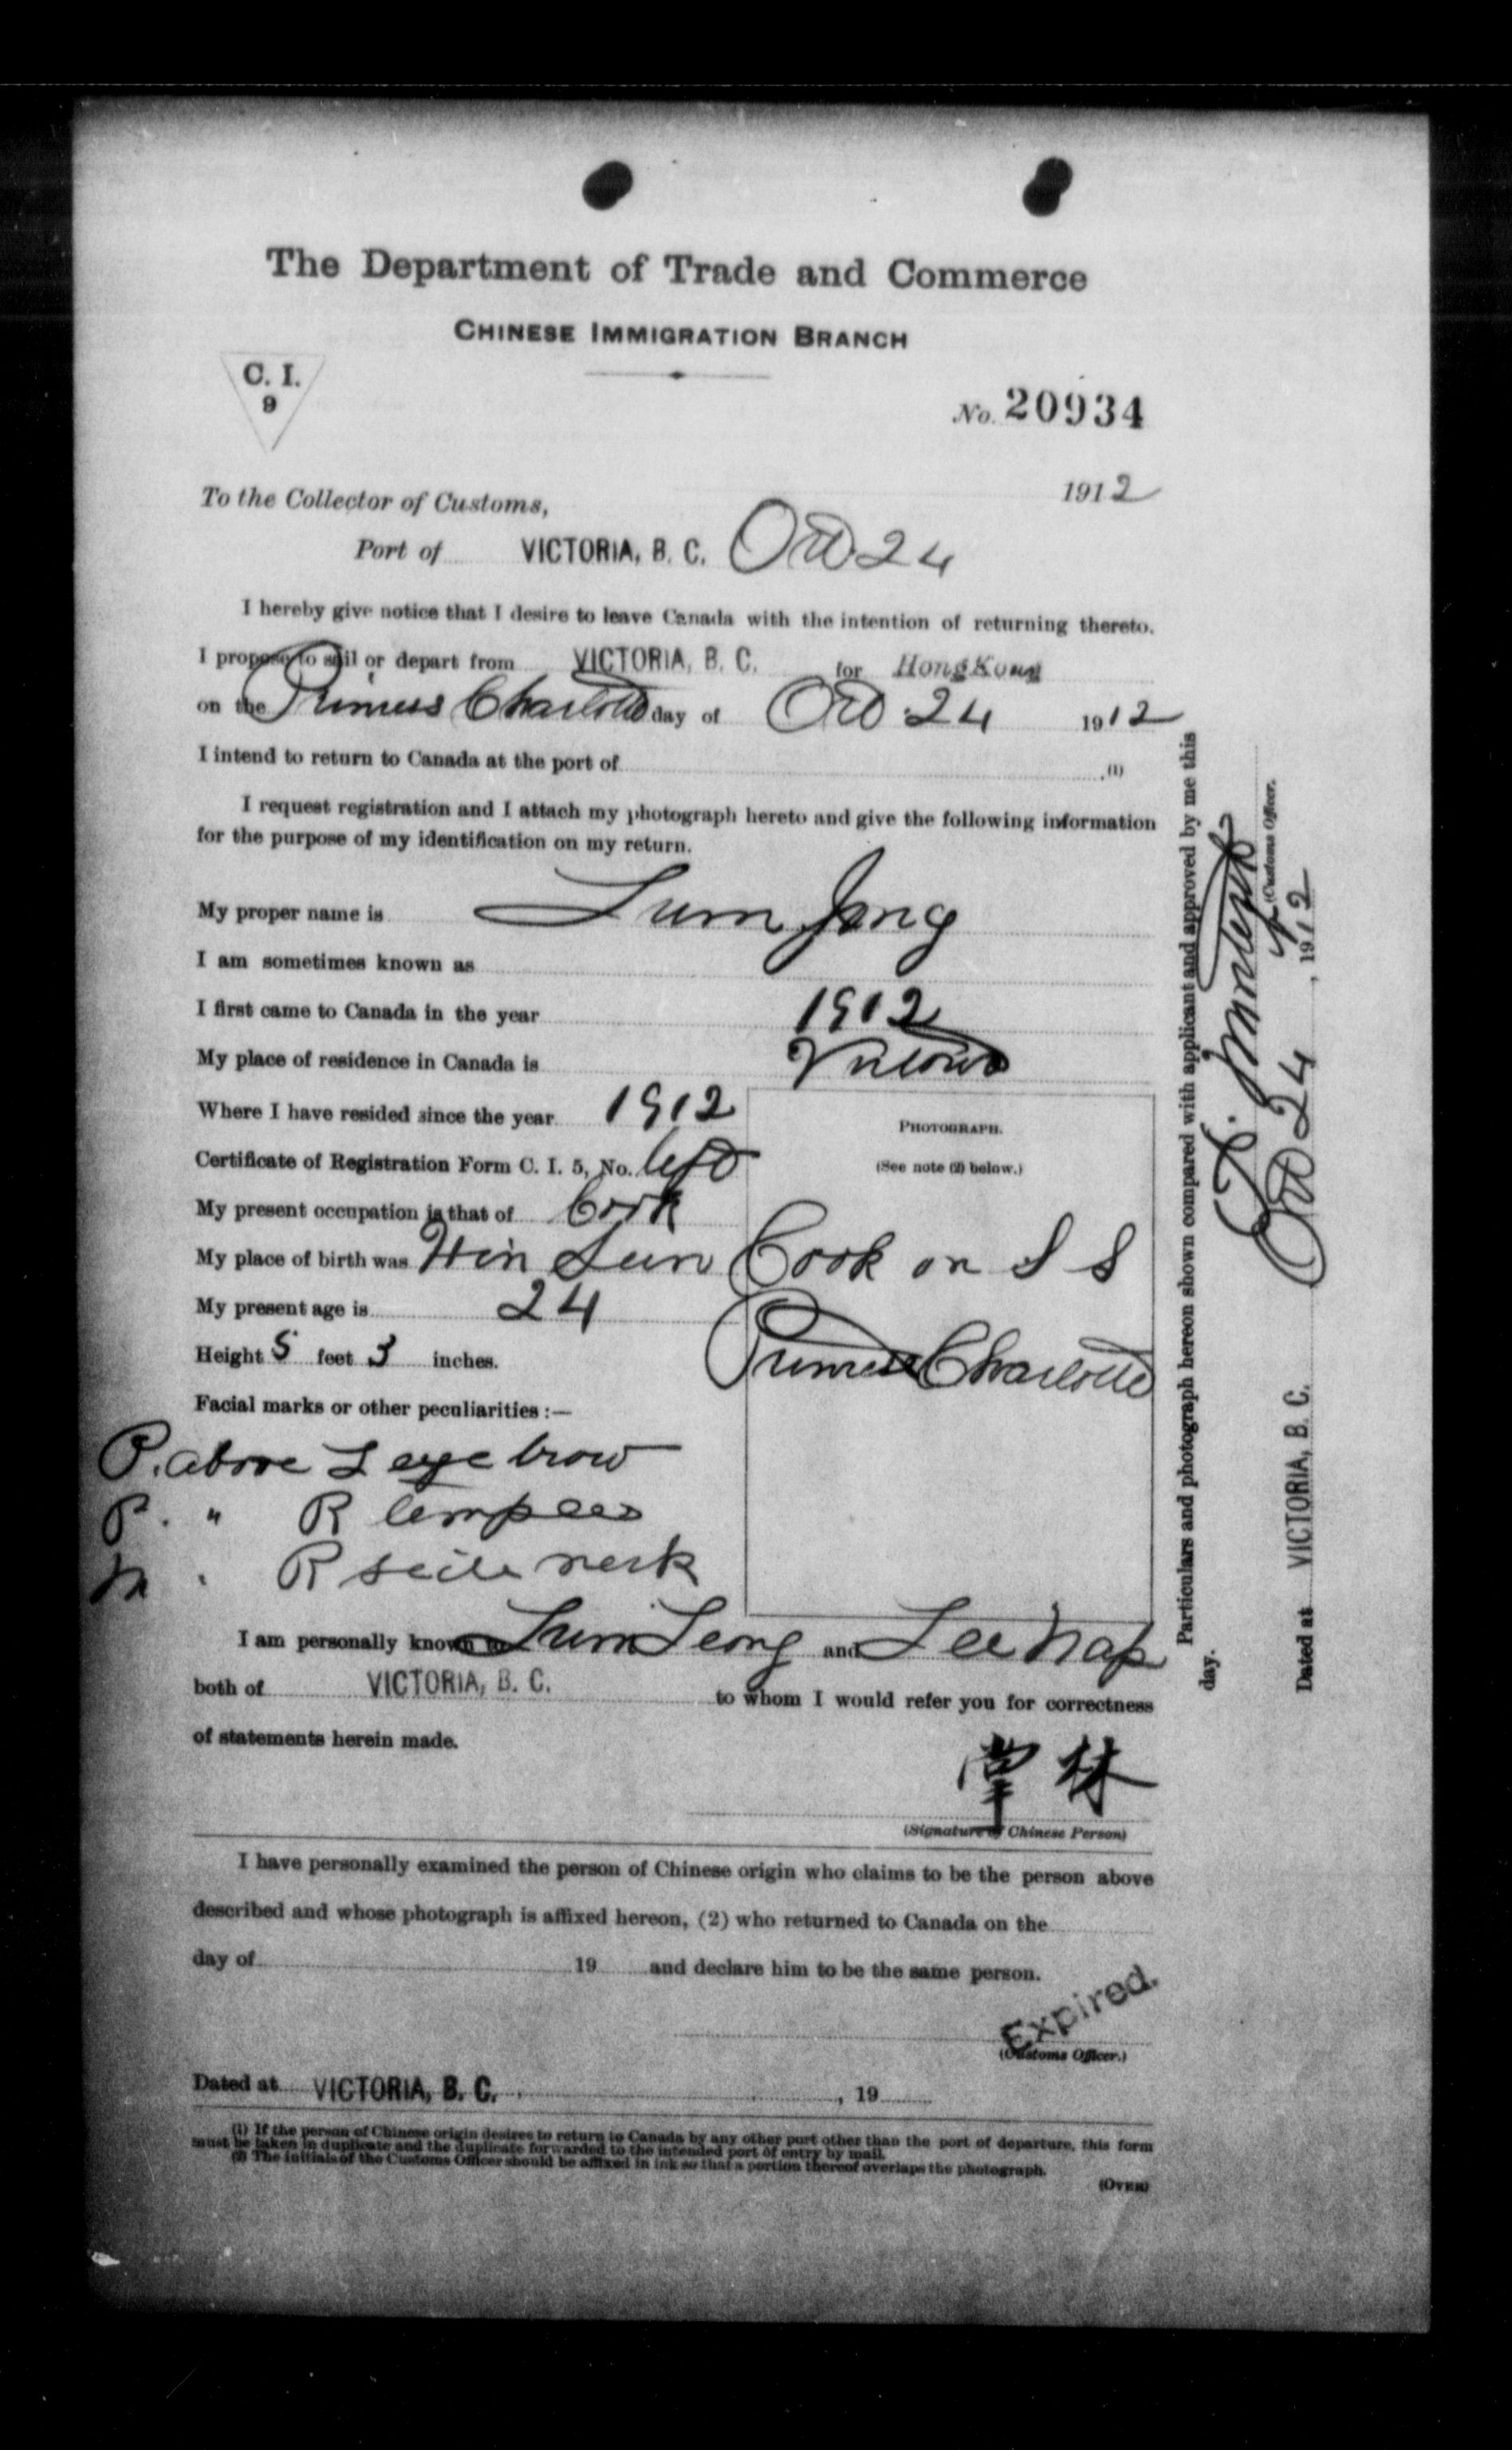 The Department of Trade and Commerce
CHINESE IMMIGRATION BRANCH
C. I.
9
No. 20934
1912
To the Collector of Customs,
Port of VICTORIA, B. C. Oct 24
I hereby give notice that I desire to leave Canada with the intention of returning thereto.
I propose to sail or depart from VICTORIA, B. C. for HongKong
on the Princess Charlotte day of Oct 24 1912
I intend to return to Canada at the port of .(1)
I request registration and I attach my photograph hereto and give the following information
for the purpose of my identification on my return.
My proper name is Lum Jong
I am sometimes known as
I first came to Canada in the year 1912
My place of residence in Canada is Victoria
Where I have resided since the year 1912
PHOTOGRAPH.
(See note (2) below.)
Certificate of Registration Form C. I. 5, No.
My present occupation is that of Cook
My place of birth was Hin Sun
Cook on S S
Princess Charlotte
My present age is 24
Height 5 feet 3 inches.
Facial marks or other peculiarities :—
P. above L eye brow
P. " R temples
M " R side neck
I am personally known to Lum Leong and Lee Nap
both of VICTORIA, B. C. to whom I would refer you for correctness
of statements herein made.
林
(Signature of Chinese Person)
I have personally examined the person of Chinese origin who claims to be the person above
described and whose photograph is affixed hereon, (2) who returned to Canada on the
day of 19 and declare him to be the same person.
Expired.
(Customs Officer.)
Dated at VICTORIA, B. C. , 19
(1) If the person of Chinese origin desires to return to Canada by any other port other than the port of departure, this form
must be taken in duplicate and the duplicate forwarded to the intended port of entry by mail.
(2) The initials of the Customs Officer should be affixed in ink so that a portion thereof overlaps the photograph.
(OVER)
Particulars and photograph hereon shown compared with applicant and approved by me this
day.
(Customs Officer.
Dated at VICTORIA, B. C. Oct 24 , 1912